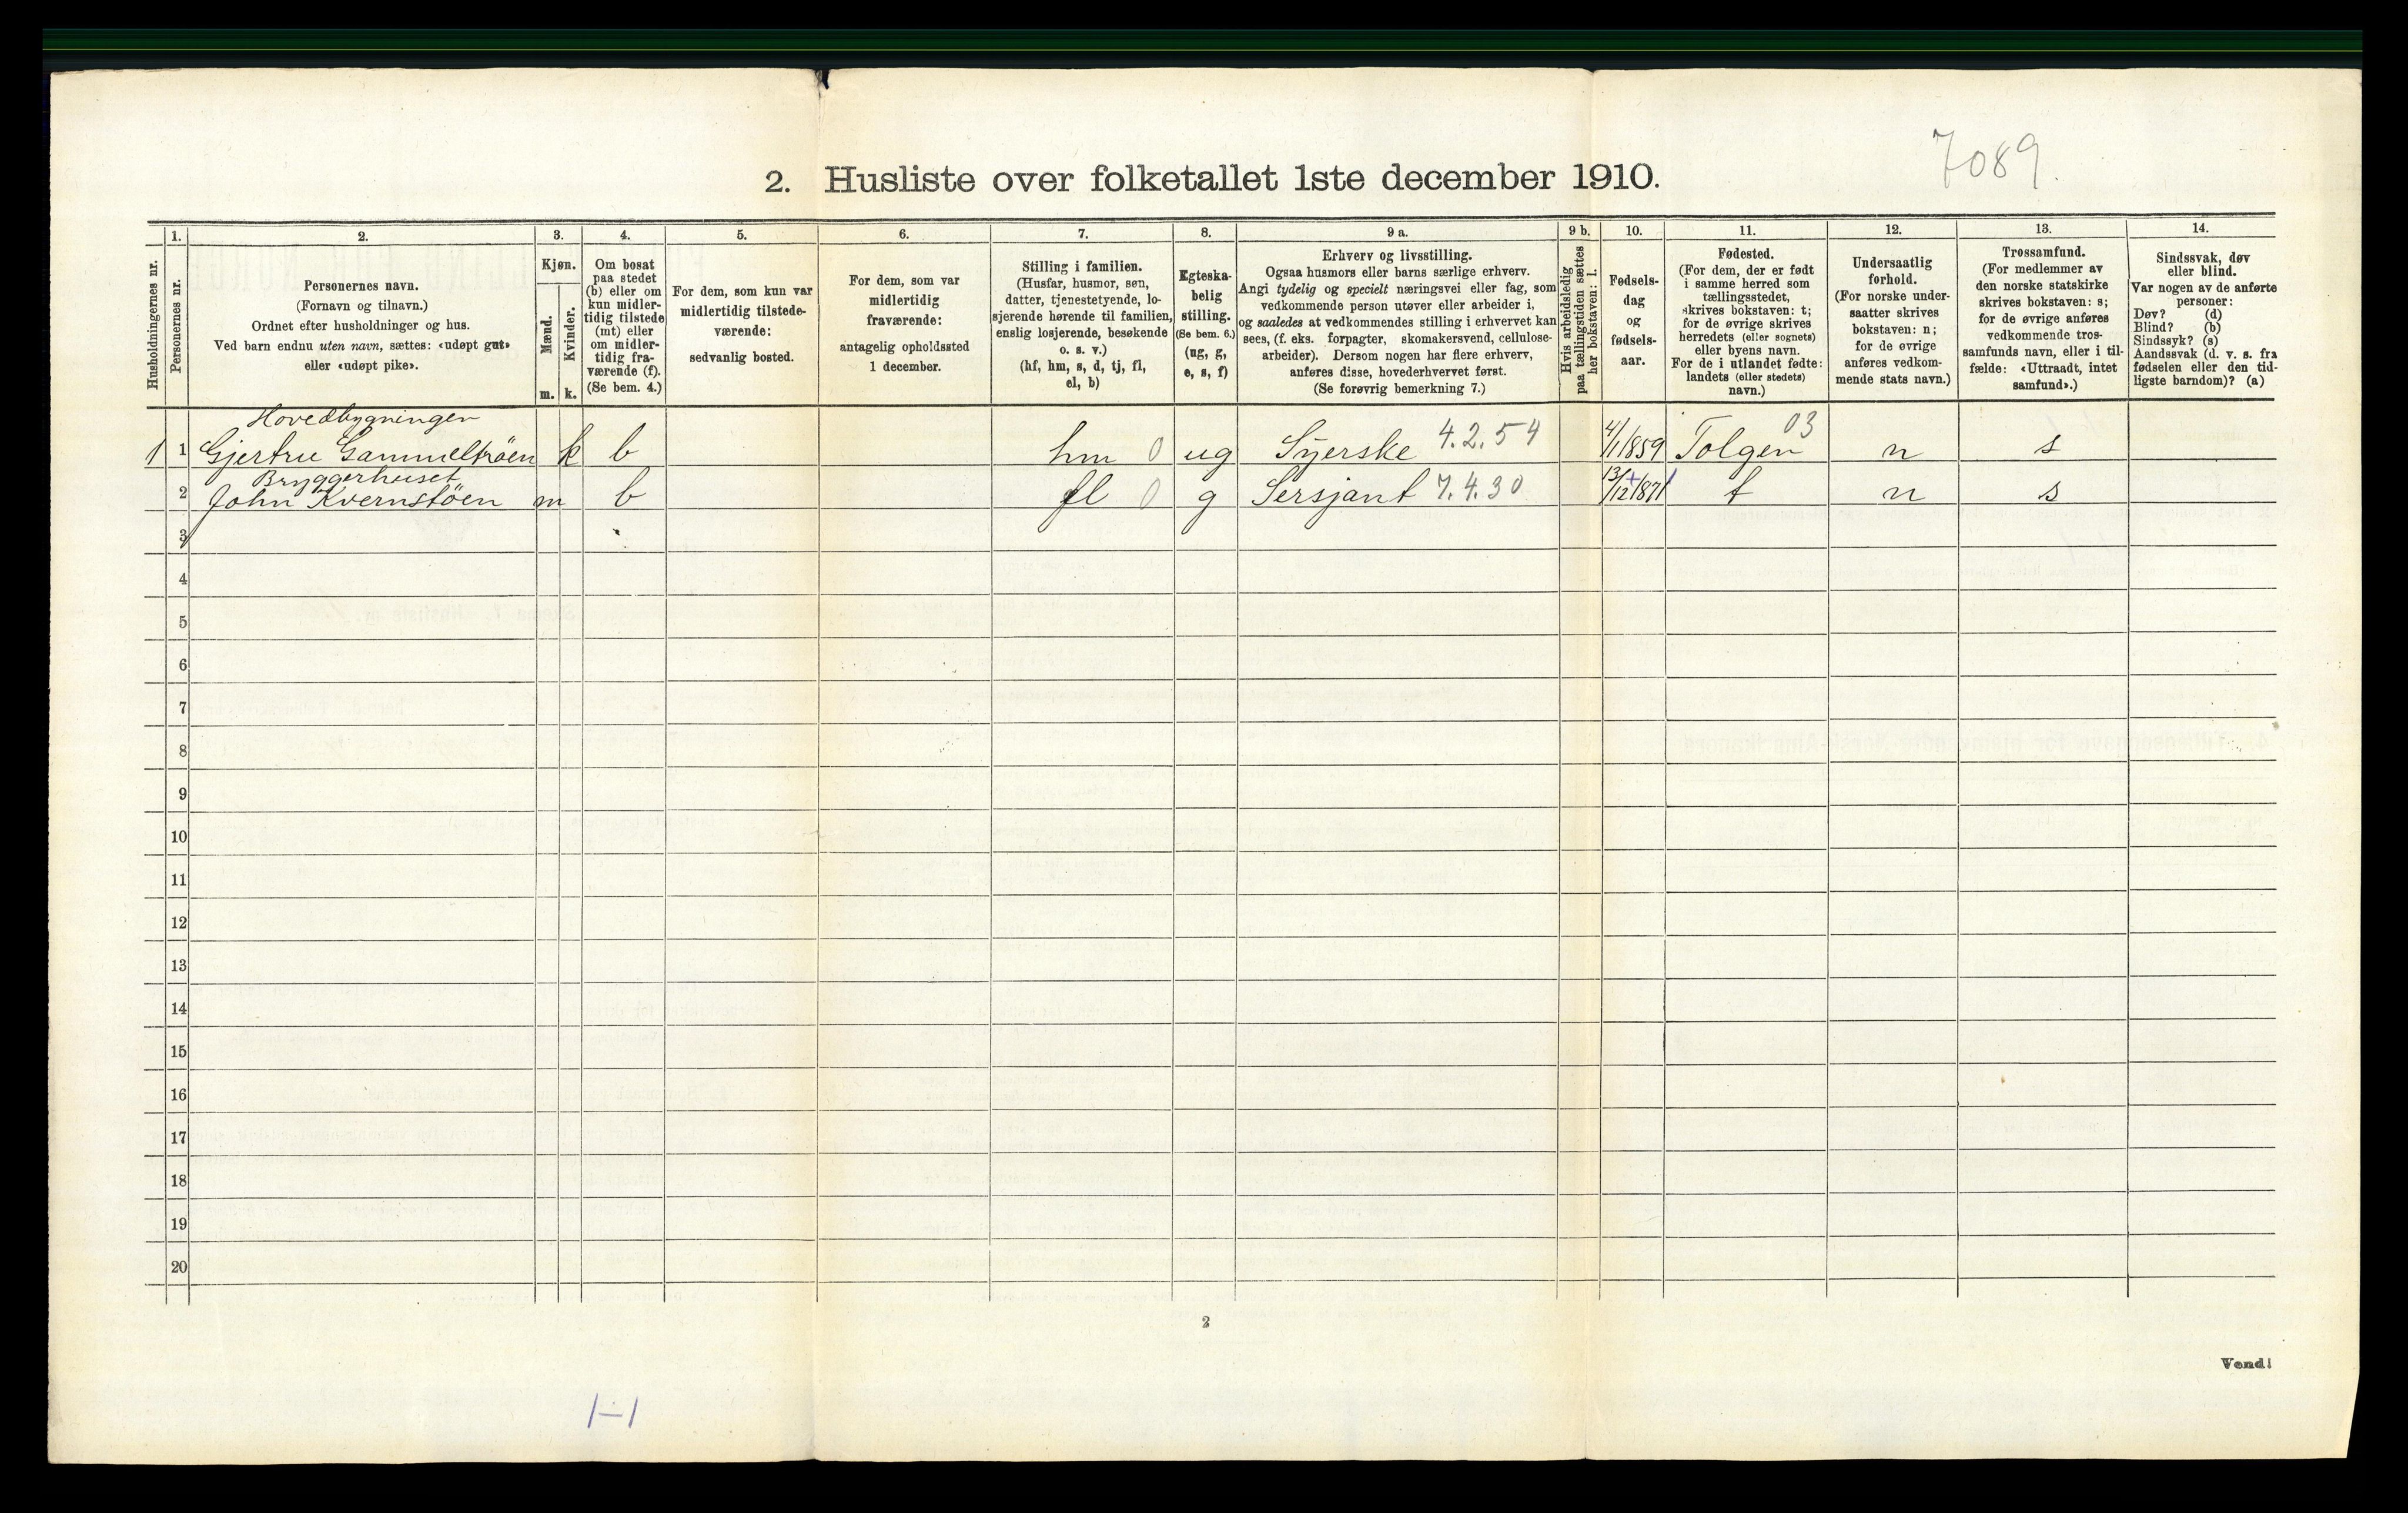 7089.
2. Husliste over folketallet 1ste december 1910.
Husholdningernes nr.
1.
Personernes nr.
2.
Personernes navn.
(Fornavn og tilnavn.)
Ordnet efter husholdninger og hus.
Ved barn endnu uten navn, sættes: «udøpt gut»
eller «udøpt pike».
3.
Kjøn.
Mænd.
Kvinder.
m. k.
4.
Om bosat
paa stedet
(b) eller om
kun midler-
tidig tilstede
(mt) eller
om midler-
tidig fra-
værende (f).
(Se bem. 4.)
5.
For dem, som kun var
midlertidig tilstede-
værende:
sedvanlig bosted.
6.
For dem, som var
midlertidig
fraværende:
antagelig opholdssted
1 december.
7.
Stilling i familien.
(Husfar, husmor, søn,
datter, tjenestetyende, lo-
sjerende hørende til familien,
enslig losjerende, besøkende
o. s. v.)
(hf, hm, s, d, tj, fl,
el, b)
8.
Egteska-
belig
stilling.
(Se bem. 6.)
(ug, g,
e, s, f)
9 a.
Erhverv og livsstilling.
Ogsaa husmors eller barns særlige erhverv.
Angi tydelig og specielt næringsvei eller fag, som
vedkommende person utøver eller arbeider i,
og saaledes at vedkommendes stilling i erhvervet kan
sees, (f. eks. forpagter, skomakersvend, cellulose-
arbeider). Dersom nogen har flere erhverv,
anføres disse, hovederhvervet først.
(Se forøvrig bemerkning 7.)
9 b.
Hvis arbeidsledig
paa tællingstiden sættes
her bokstaven: l.
10.
Fødsels-
dag
og
fødsels-
aar.
11.
Fødested.
(For dem, der er født
i samme herred som
tællingsstedet,
skrives bokstaven: t;
for de øvrige skrives
herredets (eller sognets)
eller byens navn.
For de i utlandet fødte:
landets (eller stedets)
navn.)
12.
Undersaatlig
forhold.
(For norske under-
saatter skrives
bokstaven: n;
for de øvrige
anføres vedkom-
mende stats navn.)
13.
Trossamfund.
(For medlemmer av
den norske statskirke
skrives bokstaven: s;
for de øvrige anføres
vedkommende tros-
samfunds navn, eller i til-
fælde: «Uttraadt, intet
samfund».)
14.
Sindssvak, døv
eller blind.
Var nogen av de anførte
personer:
Døv? (d)
Blind? (b)
Sindssyk? (s)
Aandssvak (d. v. s. fra
fødselen eller den tid-
ligste barndom)? (a)
Hovedbygningen
1 1 Gjertru Gammelkröen k b hm 0 ug Syerske 4.2.54 4/1 1859 Tolgen 03 n s
Bryggerhuset
2 John Kvernstöen m b fl 0 g Sersjant 7.4.30 13/12 1871 t n s
3
4
5
6
7
8
9
10
11
12
13
14
15
16
17
18
19
20
2
Vend!
1-1